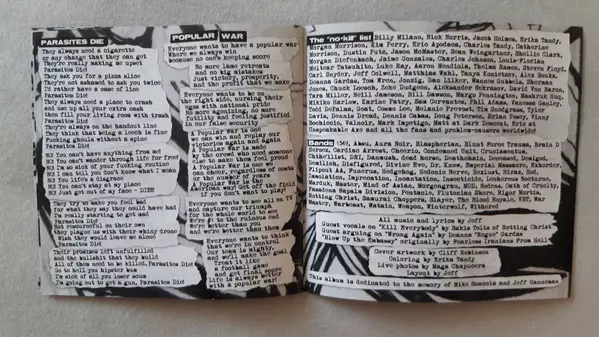 PARASITES DIE
They always need a cigarette
or any change that they can get
They're really making me upset
Parasites Die!
They ask you for a pizza slice
They're not ashamed to ask you twice
I'd rather have a case of lice
Parasites Die!
They always need a place to crash
and use up all your extra cash
then fill your living room with trash
Parasites Die!
They're always on the handout line
They think that being a leech is fine
Fucking ghouls without a spine
Parasites Die!
NO! You can't have anything from me!
NO! You can't wander through life for free!
NO! I'm so sick of your fucking whining
NO! I can tell you don't know what I wanna
NO! You life's a disgrace
NO! You can't stay at my place
NO! Just get out of my face - DIE!!!
They try to make you feel bad
for what they say they could have had
I'm really starting to get mad
Parasites Die!
Not resourceful on their own
they plague us with their whiny drone
Wish they would leave us alone
Parasites Die!
Their promises left unfulfilled
and the bullshit that they build
All of them need to be killed, Parasites Die!
Go to hell you hipster scum
I'm sick of all you loser scum
I'm going out to get a gun, Parasites Die!
POPULAR WAR
Everyone wants to have a popular war!
Where we always win
because no one's keeping score
No more lame retreats
and no big mistakes
Just victory, prosperity,
and the profit that we make
Everyone wants to be on
the right side, nursing their
egos with national pride
Righteously
futility and feeling justified
in our false security
A Popular War is one
we can win and replay our
victories again and again
A Popular War is made
by the crowd who need someone
else to make them feel proud
A Popular War is one we
can cheer, regardless of costs
or the number of years
A Popular War is the
American way! Get off the field
if you don't want to play!
Everyone wants to see all on TV
and capture our triumph
for the whole world to see
We're #1 to the ruinous end
We're better than them
and we're better than them
Everyone wants to think
that we're in control
Our team is mighty,
we will make the goal
Treat it like
a football game
and get final score
Life is always better
with a popular war!
The "no-kill" list
Billy Milano, Nick Norris, Jacob Holmes, Erika Tandy,
Morgan Morrison, Kim Perry, Eric Apodaca, Charles Tandy, Catherine
Morrison, Dustin Futz, Jason McMaster, Sean Weingartner, Shellie Clark,
Morgan Diefenbach, Jaime Gonzales, Charlie Johnson, Louis-Florian
Meltoar Tatsuhito, Luke Ray, Aaron Bourdais, Thomas Hamon, Steven Floyd,
Carl Snyder, Jeff Colwell, Matthias Wahl, Tanya Konietzov, Alex Bouks,
Deanna Gardea, Tom Wren, Jonzig, Dan Lilker, Wannes Gubbels, Sherman
Jones, Chuck Loesch, Zeke Dudgeon, Aleksander Sekresov, David Von Baron,
Tara Miller, Neill Jameson, Bill Dawson, Margo Ponninghaus, Max
Mikiko Harlow, Karine Patry, Sam Cervantes, Phil Adams, Vanessa Ganley,
Todd DePalma, Goat, Casas Leo, Melanie Prevost, The Snodgrass, Tyler
Davis, Dennis Dread, Dennis Cabas, Doug Peterson, Brian Posey, Yasu
Bochicio, Valnoir, Mark Imperiego, Matt at Dark Descent, Eric at
Unspeakable Axe and all the fans and problem-causers worldwide!
Bands
1349, Absu, Aura Noir, Blaspherian, Blunt Force Trauma, Brain D
Serozz, Cardiac Arrest, Cheerio, Condemned Unit, Crucitamentum,
Cathellist, DRI, Daxsaudi, dead horse, Deathchain, Deceased, Desiged,
Deadlith, Disfigured, Divine Eve, Dr. Know, Imperial Massacre, Exhorder,
Flipout AA, Funerus, Hödghög, Hedonic Gorey, Hellset, Hirax, Hod,
Imsolation, Imprecation, Incantation, Insecticide, Lecherous Nocturne,
Marduk, Master, Mind of Asian, Morgengram, MOD, Nodens, Oath of Cruelty,
Pasadena Napalm Division, Proteolic, Plutonian Shore, Rigor Mortis,
Rotting Christ, Samurai Choppers, Slayer, The Blood Royale, VBT, War
Master, Warbeast, Wattain, Weapon, Winterwolf, Withered
All music and lyrics by Jeff
Guest vocals on "Kill Everybody" by Sakis Tolis of Rotting Christ
Guest arguing on "Wrong Again" by Deanna "Rogue" Gardea
"Blow Up the Embassy" originally by Fearless Iranians From Hell
Cover artwork by Cliff Robinson
Coloring by Erika Tandy
Live photos by Mega Chapocera
Layout by Jeff
This album is dedicated to the memory of Mike Scaccia and Jeff Hanneman